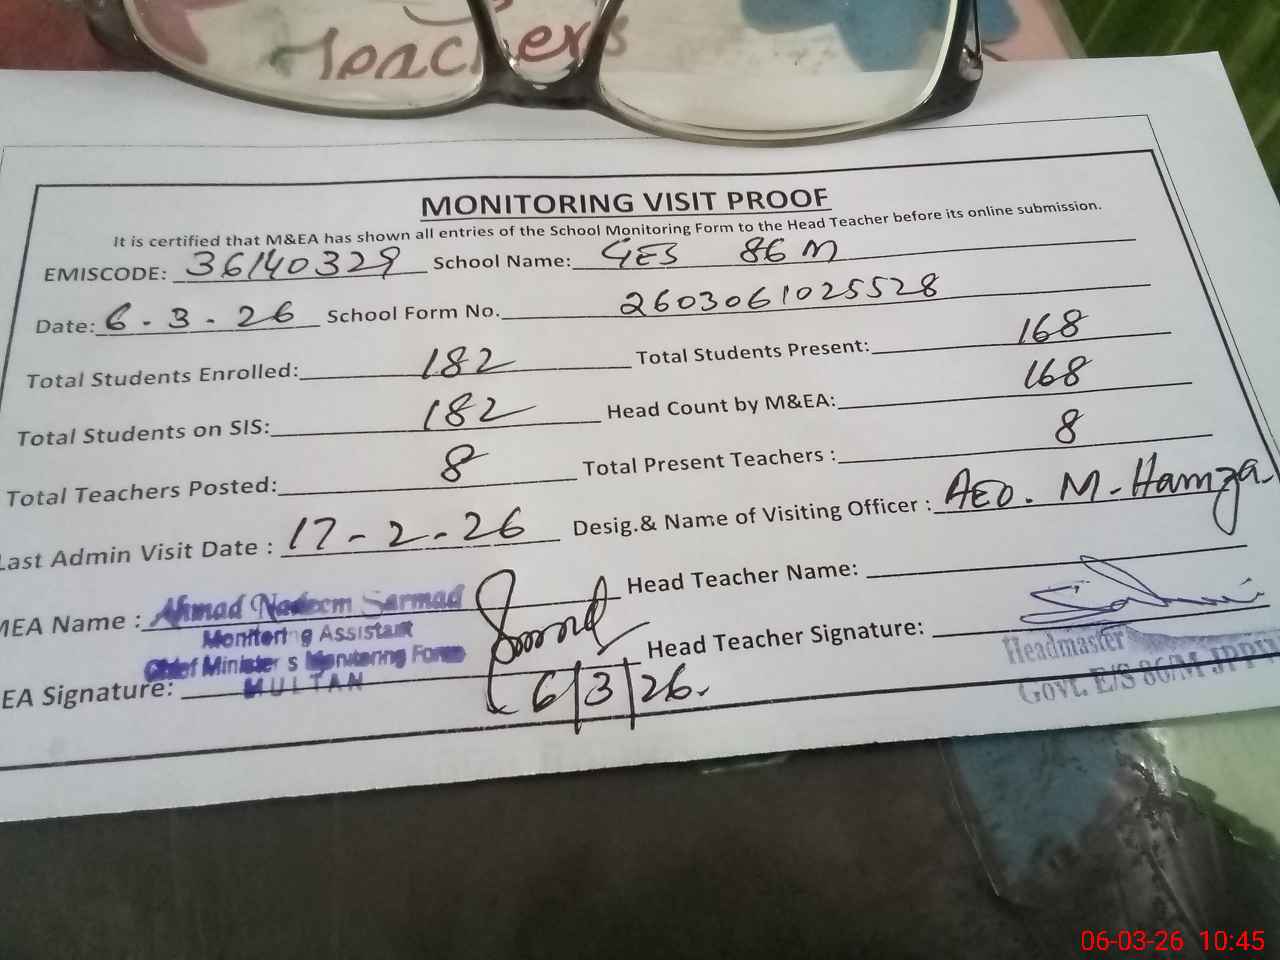 Teachers
MONITORING VISIT PROOF
It is certified that M&EA has shown all entries of the School Monitoring Form to the Head Teacher before its online submission.
EMISCODE: 36140329 School Name: GES 86 M
Date: 6-3-26 School Form No. 2603061025528
Total Students Enrolled: 182 Total Students Present: 168
Total Students on SIS: 182 Head Count by M&EA: 168
Total Teachers Posted: 8 Total Present Teachers : 8
Last Admin Visit Date : 17-2-26 Desig.& Name of Visiting Officer : AEO. M-Hamza
MEA Name : Ahmad Nadeem Sarmad Head Teacher Name:
Monitoring Assistant
Chief Minister s Monitoring Force
MULTAN
EA Signature: 6/3/26. Head Teacher Signature:
Headmaster
Govt. E/S 86/M JPPW
06-03-26 10:45